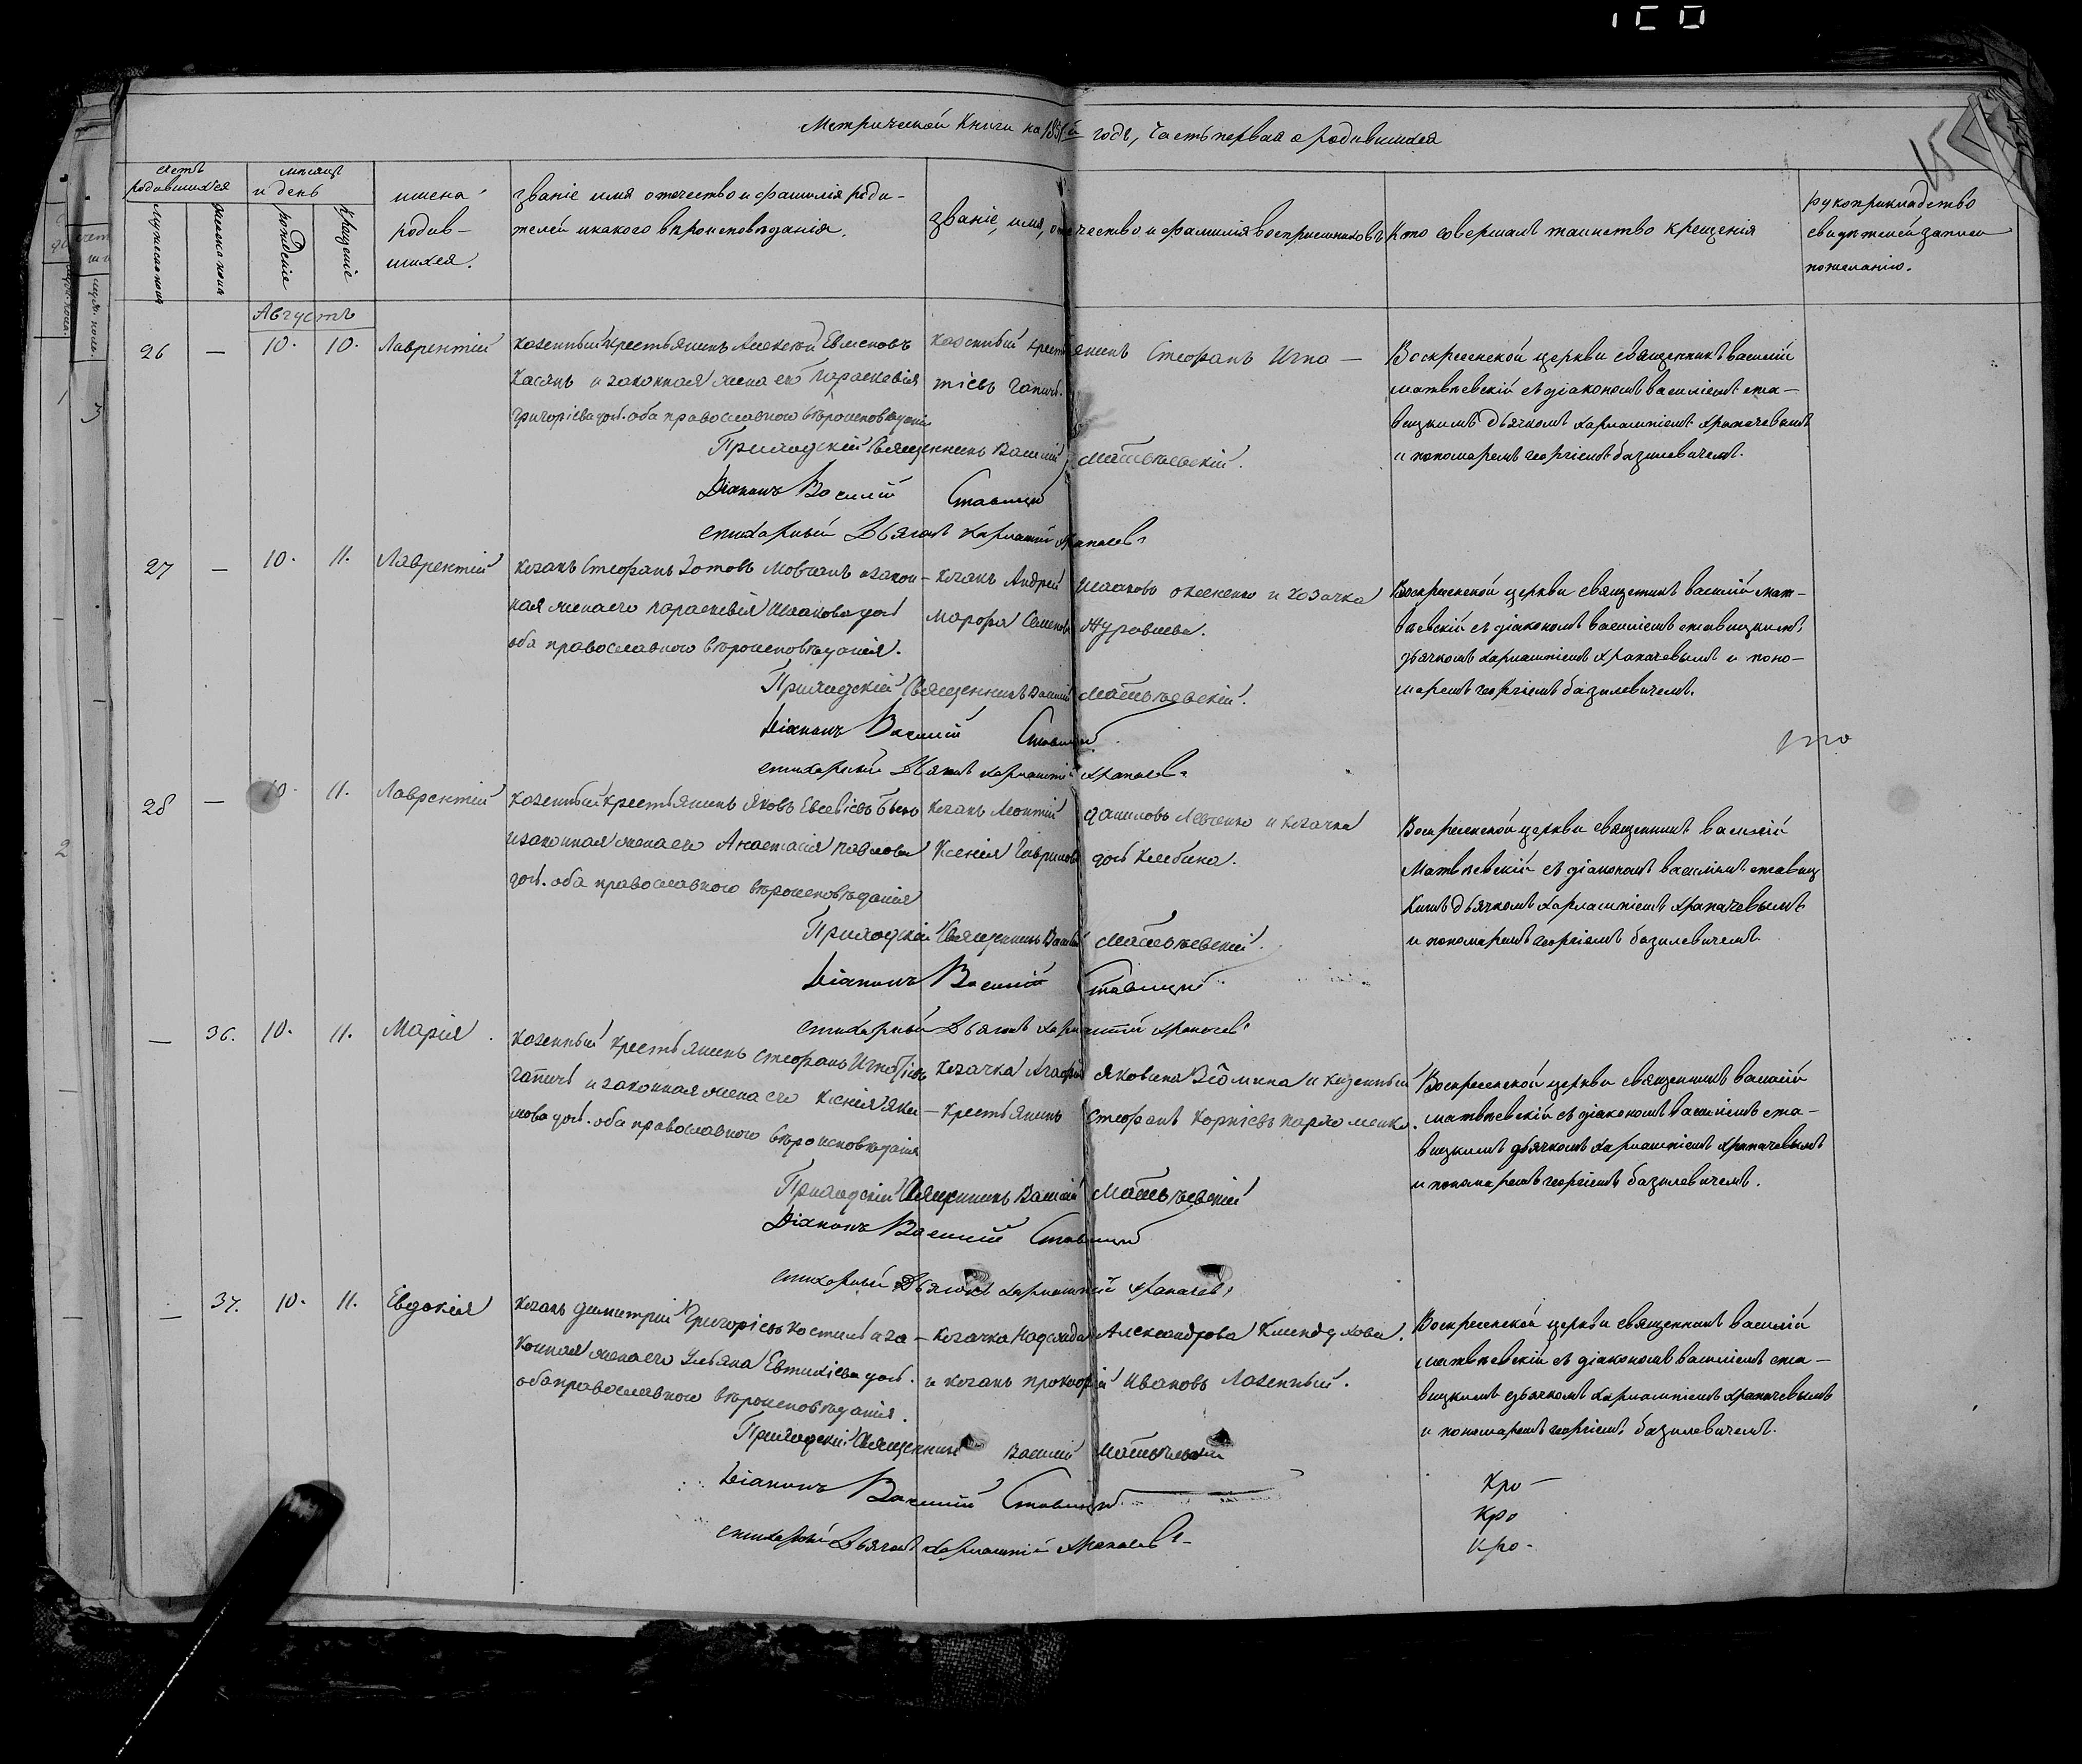 Метрической книги на 1851й годъ, часть первая о родившихся
15
счетъ родившихся
мужеска пола
женска пола
мѣсяцъ и день
рожденіе
крещеніе
имена родив-
шихся.
званіе имя отечество и фамилія роди-
телей и какого вѣроисповѣданія.
званіе, имя, отечество и фамилія воспріемниковъ
Кто совершалъ таинство крещенія
рукоприкладство
свидѣтелей записи
по желанію.
Августъ
26 — 10. 10. Лаврентій
казенный крестьянинъ Алексѣй Евменовъ
Касянъ и законная жена его Параскевія
Григоріева дочь. оба православного вѣроисповѣданія
казенный крестьянинъ Стефанъ Игна-
тіевъ Гапичъ.
Воскресенской церкви священникъ василій
матвѣевскій съ діакономъ василіемъ ста-
вицкимъ дьячкомъ харлампіемъ храпачевымъ
и пономаремъ георгіемъ базилевичемъ.
Приходскій Священникъ Василій Матвѣевскій.
Діаконъ Василій Ставицкій
стихарный Дьячокъ Харлампій Храпачевъ
27 — 10. 11. Лаврентій
козакъ Стефанъ Зотовъ Мовчанъ и закон-
ная жена его Параскевія Исакова дочь
оба православного вѣроисповѣданія.
козакъ Андрей Исааковъ и козачка
Марфа Семенова Журавлева.
Воскресенской церкви священникъ василій мат-
вѣевскій съ діакономъ василіемъ ставицкимъ,
дьячкомъ харлампіемъ храпачевымъ и поно-
маремъ георгіемъ базилевичемъ.
Приходскій Священникъ Василій Матвѣевскій.
Діаконъ Василій Ставицкій
стихарный Дьячокъ харлампій храпачевъ
28 — 10. 11. Лаврентій
казенный крестьянинъ Яковъ Евсевіевъ
и законная жена его Анастасія Павлова
дочь. оба православного вѣроисповѣданія
козакъ Леонтій Даниловъ Левченко и козачка
Ксенія Гаврилова дочь
Воскресенской церкви священникъ василій
Матвѣевскій съ діакономъ василіемъ ставиц
кимъ дьячкомъ харлампіемъ храпачевымъ
и пономаремъ георгіемъ базилевичемъ
Приходскій Священникъ Василій Матвѣевскій.
Діаконъ Василій Ставицкій
стихарный Дьячокъ харлампій храпачевъ
— 36. 10. 11. Марія.
казенный крестьянинъ Стефанъ Игнатіевъ
Гапичъ и законная жена его Ксенія Яки-
мова дочь. оба православного вѣроисповѣданія
козачка Агафія Яковина и казенный
крестьянинъ Стефанъ Корніевъ Пархоменко.
Воскресенской церкви священникъ василій
матвѣевскій съ діакономъ василіемъ ста-
вицкимъ дьячкомъ харлампіемъ храпачевымъ
и пономаремъ георгіемъ базилевичемъ.
Приходскій Священникъ Василій Матвѣевскій
Діаконъ Василій Ставицкій
стихарный Дьячокъ харлампій храпачевъ
— 37. 10. 11. Евдокія
козакъ Димитрій Григоріевъ и за-
конная жена его Ульяна Евтихіева дочь.
оба православного вѣроисповѣданія.
козачка Надежда Александрова
и козакъ Прокофій Ивановъ
Воскресенской церкви священникъ василій
матвѣевскій съ діакономъ василіемъ ста-
вицкимъ дьячкомъ харлампіемъ храпачевымъ
и пономаремъ георгіемъ базилевичемъ.
Приходскій Священникъ Василій Матвѣевскій
Діаконъ Василій Ставицкій
стихарный Дьячокъ харлампій храпачевъ
Кро-
Кро
Кро-